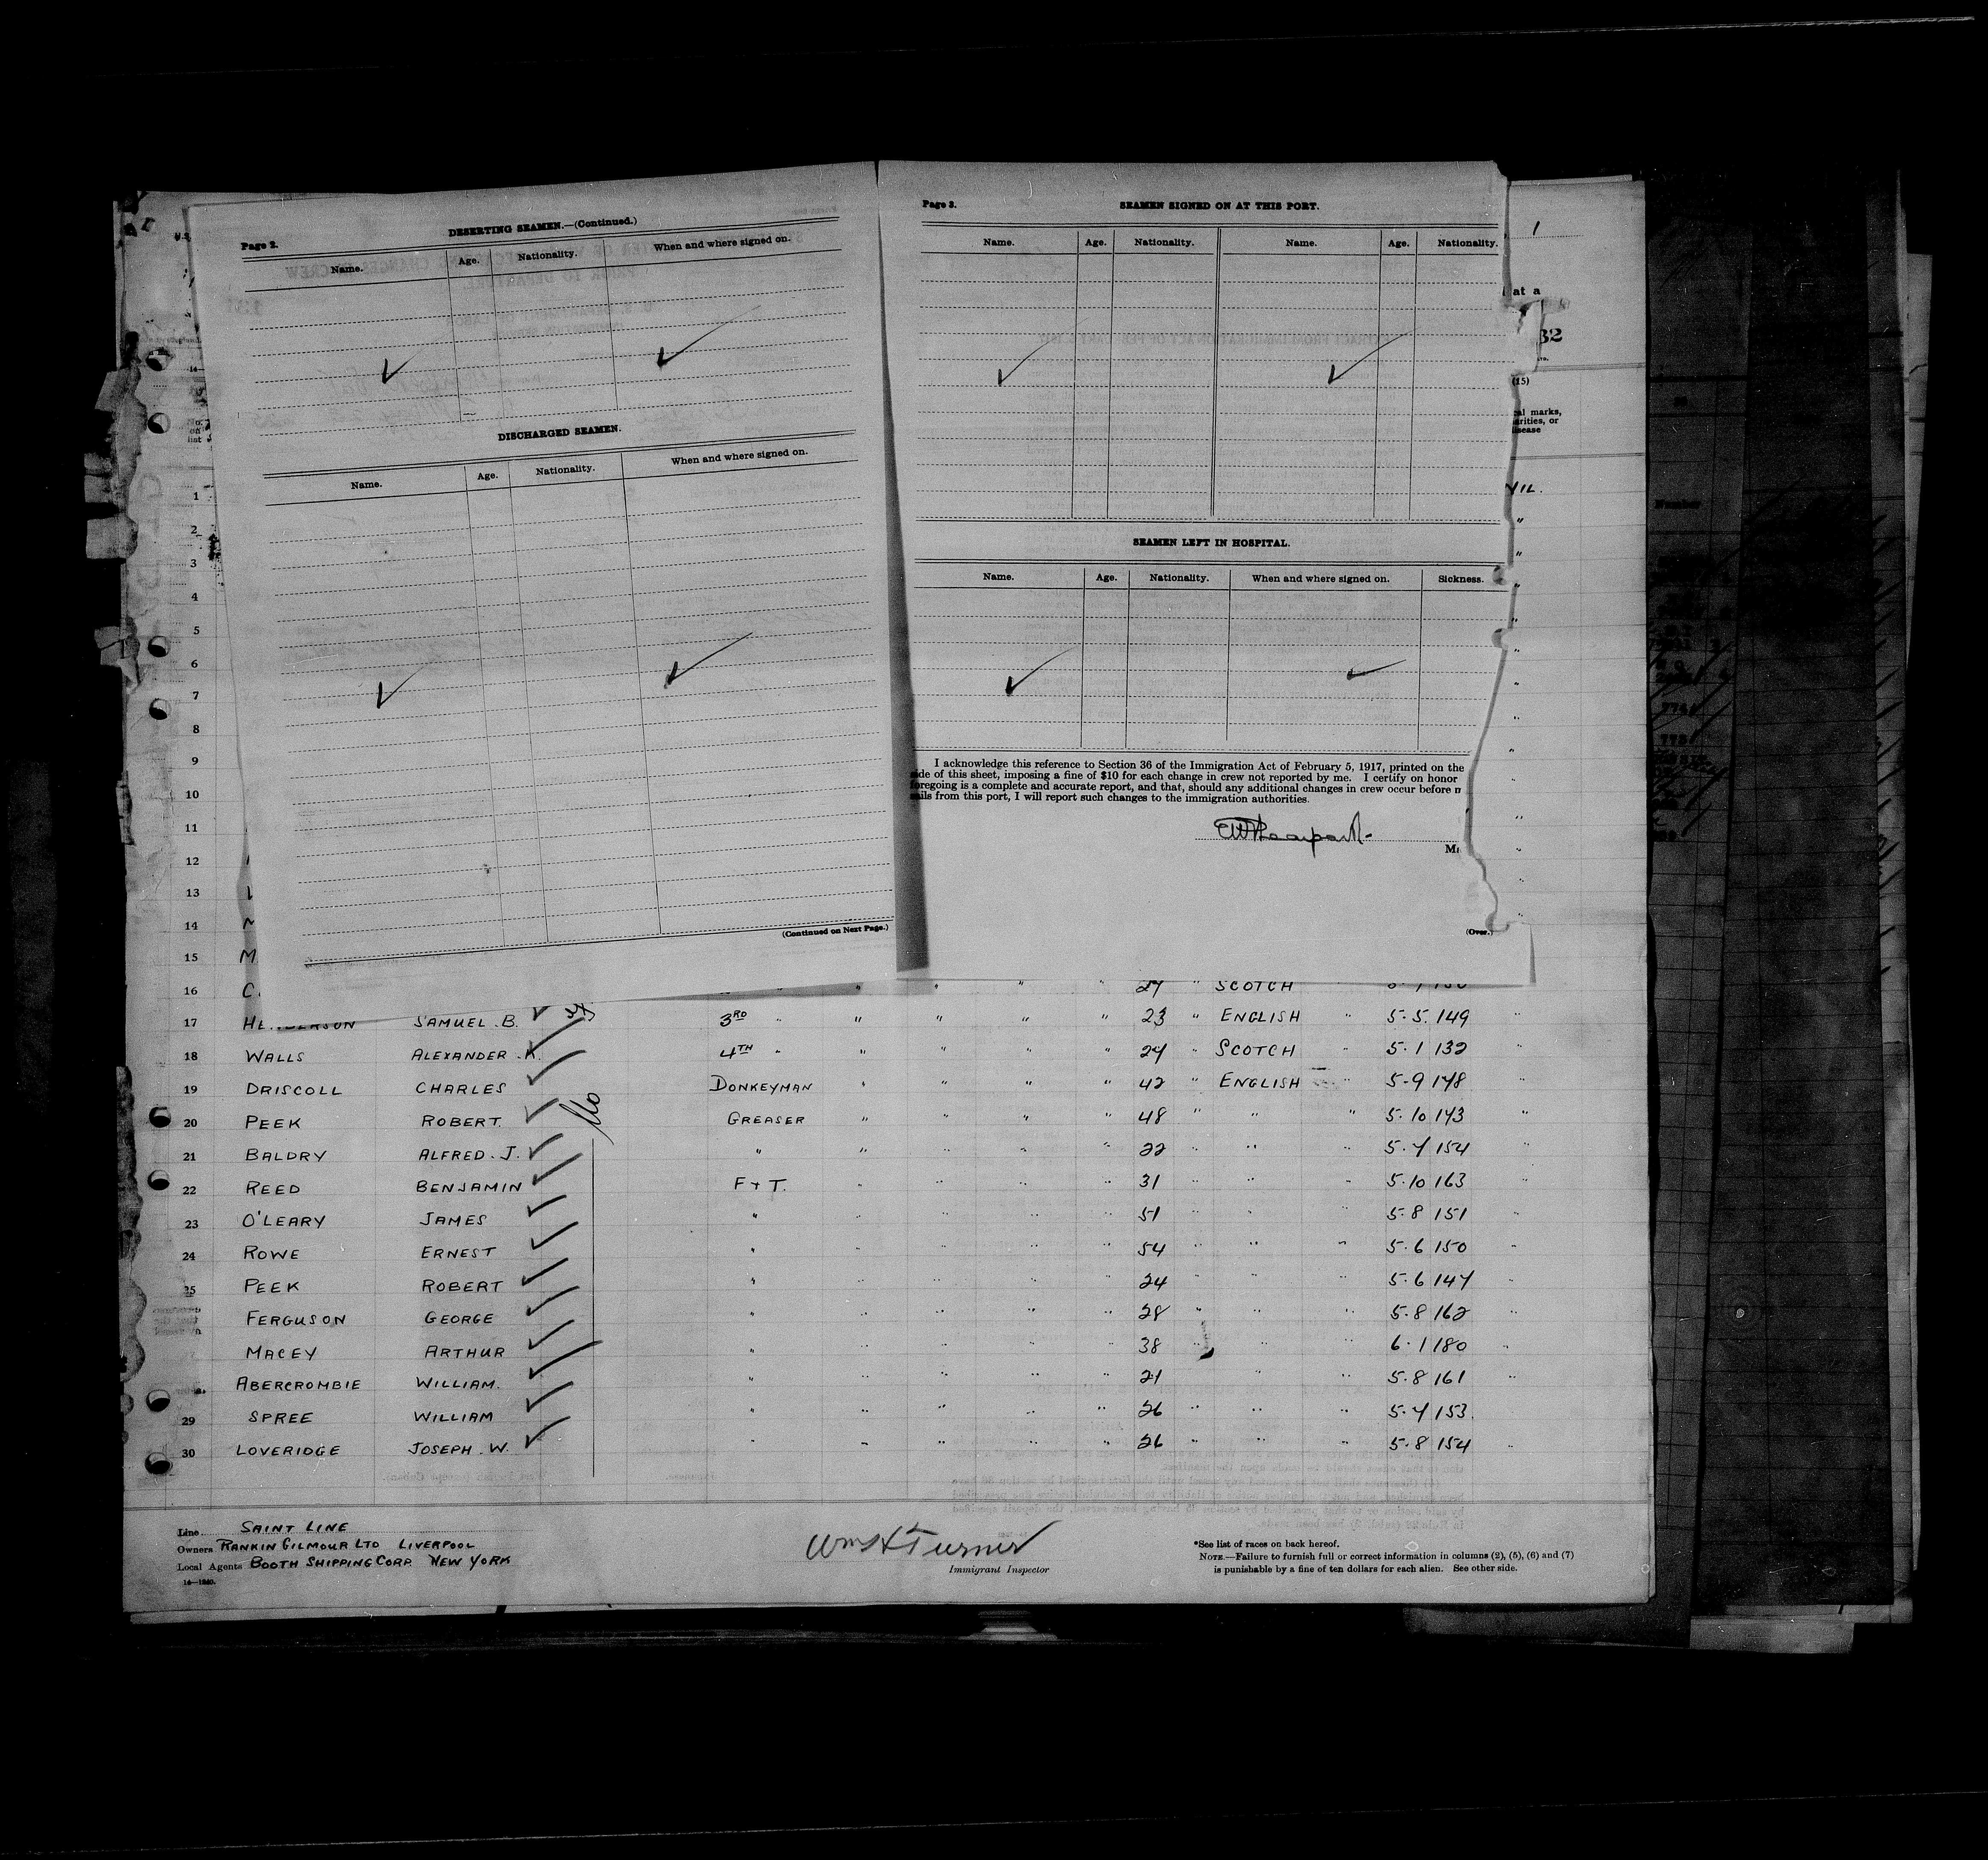 Page 2.
DESERTING SEAMEN.—(Continued.)
Name. Age. Nationality. When and where signed on.
DISCHARGED SEAMEN.
Name. Age. Nationality. When and where signed on.
(Continued on Next Page.)
Page 3.
SEAMEN SIGNED ON AT THIS PORT.
Name. Age. Nationality. Name. Age. Nationality.
SEAMEN LEFT IN HOSPITAL.
Name. Age. Nationality. When and where signed on. Sickness.
I acknowledge this reference to Section 36 of the Immigration Act of February 5, 1917, printed on the
side of this sheet, imposing a fine of $10 for each change in crew not reported by me. I certify on honor
foregoing is a complete and accurate report, and that, should any additional changes in crew occur before
sails from this port, I will report such changes to the immigration authorities.
(Over.)
1
at a
32
(15)
marks,
or
No.
on
list
1
2
3
4
5
6
7
8
9
10
11
12
13
14
15 M
16 C. " " " 24 SCOTCH
17 HENDERSON SAMUEL . B. 3RD " " " " " 23 " ENGLISH " 5·5 149 "
18 WALLS ALEXANDER . 4TH " " " " " 24 " SCOTCH " 5·1 132 "
19 DRISCOLL CHARLES DONKEYMAN " " " " 42 " ENGLISH " 5·9 148 "
20 PEEK ROBERT. No GREASER " " " " 48 " " " 5·10 143 "
21 BALDRY ALFRED . J. " " " " " 22 " " " 5·4 154 "
22 REED BENJAMIN F + T. " " " " 31 " " " 5·10 163 "
23 O'LEARY JAMES " " " " " 51 " " " 5·8 151 "
24 ROWE ERNEST " " " " " 54 " " " 5·6 150 "
25 PEEK ROBERT " " " " " 24 " " " 5·6 147 "
FERGUSON GEORGE " " " " " 28 " " " 5·8 162 "
MACEY ARTHUR " " " " " 38 " " " 6·1 180 "
ABERCROMBIE WILLIAM. " " " " " 21 " " " 5·8 161 "
29 SPREE WILLIAM " " " " " 26 " " " 5·4 153.
30 LOVERIDGE JOSEPH . W. " " " " " 26 " " " 5·8 154 "
Line SAINT LINE
Owners RANKIN GILMOUR LTD LIVERPOOL
Local Agents BOOTH SHIPPING CORP. NEW YORK
14—1240.
Wm H Turner
Immigrant Inspector
*See list of races on back hereof.
NOTE.—Failure to furnish full or correct information in columns (2), (5), (6) and (7)
is punishable by a fine of ten dollars for each alien. See other side.